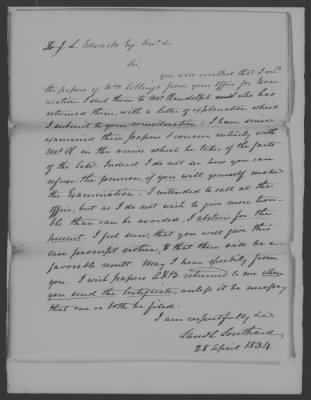 To J. L. Edwards Esq. &c. &c.
Sir
you will recollect that I recd.
the papers of Wm Collings from your Office for Exam
ination. I sent them to Mr. Randolph and who has
returned them, with a Letter of explanation which
I submit to your consideration: I have since
examined these papers I concur entirely with
Mr. R in the views which he takes of the facts
of the case. Indeed I do not see how you can
refuse the pension, if you will yourself make
the Examination. I intended to call at the
Office, but as I do not wish to give more trou-
ble than can be avoided, I abstain for the
present. I feel sure, that you will give this
case prompt notice, & that there will be a
favorable result. May I hear speedily from
you. I wish papers A & B returned to me when
you send the Certificate, unless it be necessary
that one or both be filed.
I am respectfully &c
Saml L Southard
28 April 1834